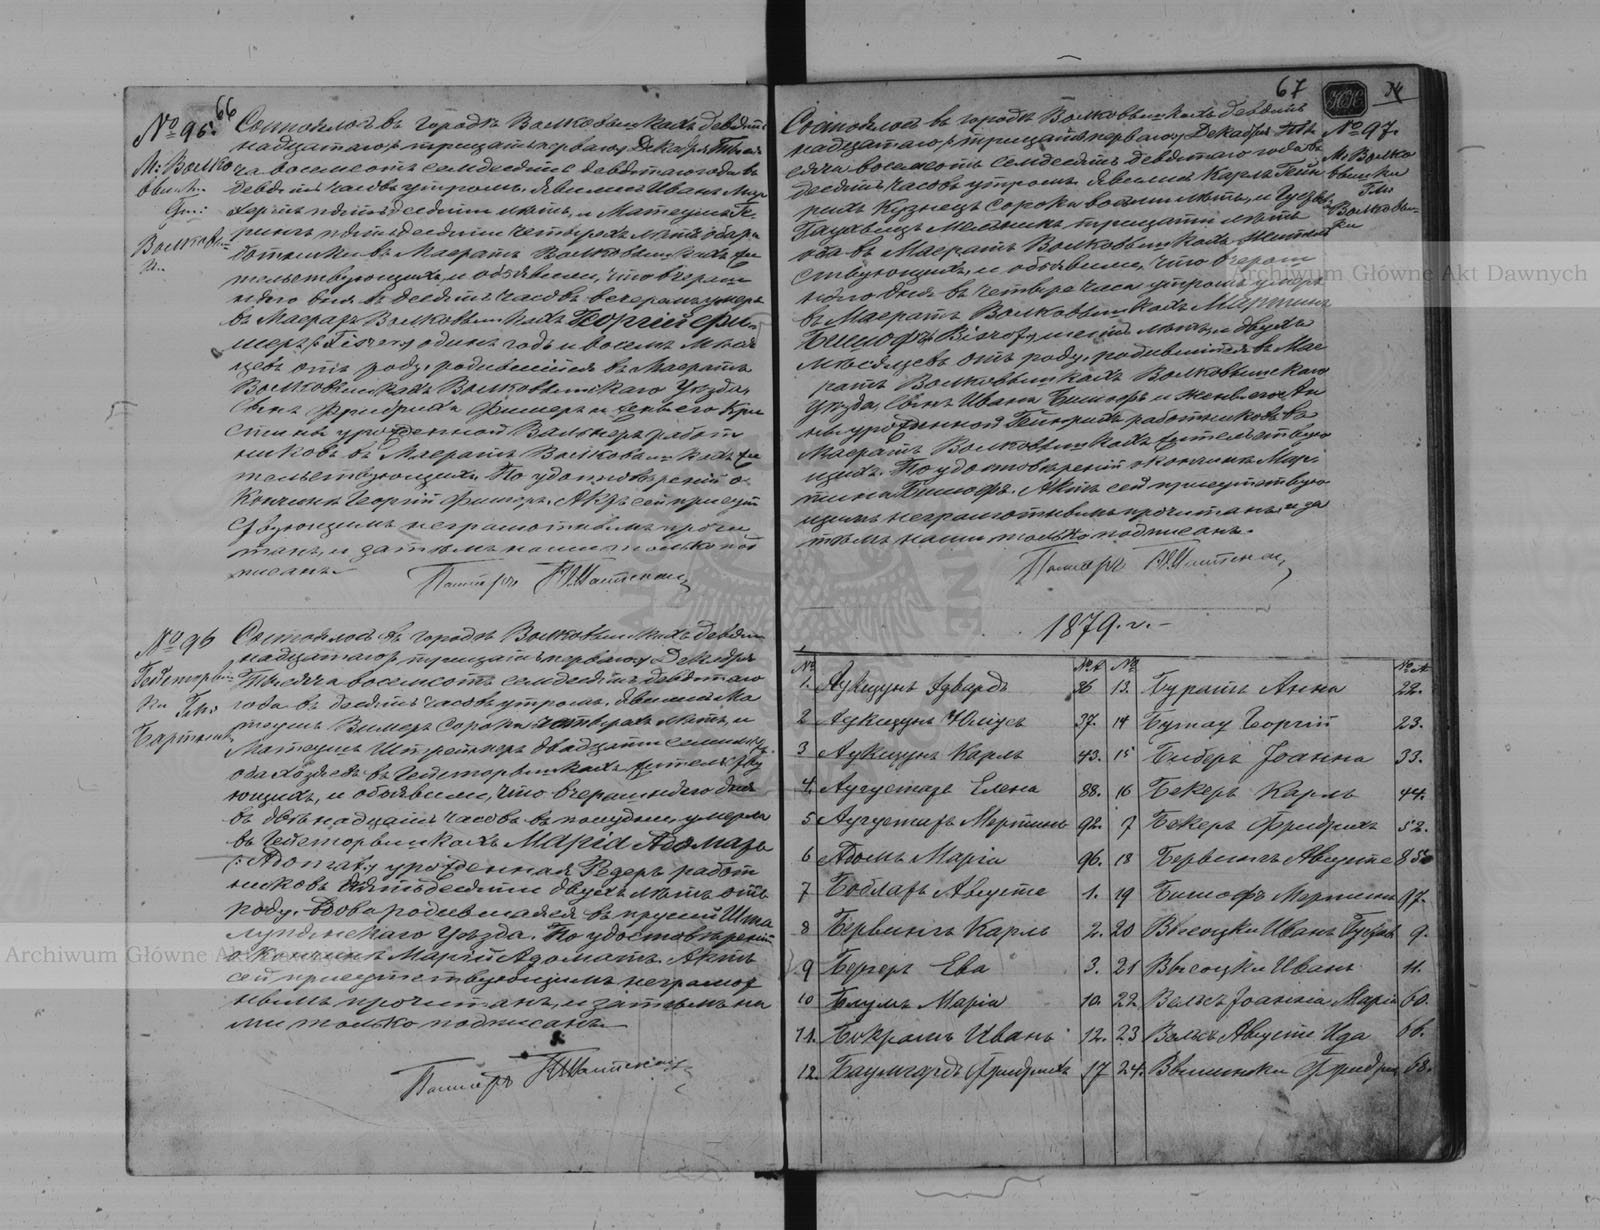 66
№ 95.
М: Волко
вишки
Гм:
Волковиш
ки.
Состоялось въ городѣ Волковышкахъ девят
надцатаго / тридцать перваго / Декабря Тыся
ча восемьсотъ семдесятъ девятаго года въ
девять часовъ утромъ. Явились Иванъ
пятьдесятъ лѣтъ, и Матеушъ
рингъ пятьдесятъ четырехъ лѣтъ оба ра
ботники въ Маератъ Волковышкахъ жи
тельствующіе, и объявили, что вчераш
няго дня въ десять часовъ вечеромъ умеръ
въ Маератъ Волковышкахъ Георгій Фи
шеръ /: Fiszer :/ одинъ годъ и восемь мѣся
цевъ отъ роду, родившійся въ Маератъ
Волковышкахъ Волковышскаго Уѣзда,
Сынъ Фридриха Фишеръ и жены его Кри
стины урожденной Вальнеръ работ
никовъ въ Маератъ Волковышкахъ жи
тельствующихъ. По удостовѣреніи о
Кончинѣ Георгій Фишеръ. Актъ сей присут
ствующимъ неграмотнымъ прочи
танъ, и затѣмъ нами только под
писанъ.
Пасторъ
№ 96
Гейсторвиш
ки Гм:
Бартники
Состоялось въ городѣ Волковышкахъ девят
надцатаго / тридцать перваго / Декабря
Тысяча восемьсотъ семдесятъ девятаго
года въ десять часовъ утромъ. Явились Ма
теушъ Вимеръ сорока четырехъ лѣтъ, и
Матеушъ Штрейнеръ двадцати семи лѣтъ
оба хозяева въ Гейсторвишкахъ жительству
ющіе, и объявили, что вчерашняго дня
въ двѣнадцать часовъ въ полудни умерла
въ Гейсторвишкахъ Марія Адоматъ
/: Adomat :/ урожденная Редеръ работ
никовъ пятьдесятъ двухъ лѣтъ отъ
роду. Вдова родившаяся въ пруссіи Шта
лупянскаго Уѣзда. По удостовѣреніи
о Кончинѣ Маріи Адоматъ. Актъ
сей присутствующимъ неграмот
нымъ прочитанъ, и затѣмъ на
ми только подписанъ.
Пасторъ
67
№ 97.
М. Волко
вишки
Гм:
Волковиш
ки
Состоялось въ городѣ Волковышкахъ девят
надцатаго / тридцать перваго / Декабря Ты
сяча восемьсотъ семдесятъ девятаго года въ
десять часовъ утромъ. Явились Карлъ Гейн
рихъ Кузнецъ сорока восьми лѣтъ, и Густавъ
мельникъ тридцати лѣтъ
оба въ Маератъ Волковышкахъ жительст
ствующіе, и объявили, что вчераш
няго дня въ четыре часа утромъ умеръ
въ Маератъ Волковышкахъ Мартинъ
Бишофъ /: Bischof :/ лѣтъ и двухъ
мѣсяцевъ отъ роду, родившійся въ Мае
ратъ Волковышкахъ Волковышскаго
Уѣзда, Сынъ Ивана Бишофъ и жены его Ан
ны урожденной Гейнрихъ работниковъ въ
Маератъ Волковышкахъ жительствую
щихъ. По удостовѣреніи о кончинѣ Мар
тина Бишофъ. Актъ сей присутствую
щимъ неграмотнымъ прочитанъ и за
тѣмъ нами только подписанъ.
Пасторъ
1879. г.
№ № А № № А
1. Аукщунъ Эдвардъ 36 13. Буратъ Анна 22.
2 Аукщунъ Юліусъ 37. 14 Бутау Георгій 23.
3 Аукщунъ Карлъ 43. 15 Биберъ Іоанна 33.
4. Аугустатъ Елена 88. 16 Бекеръ Карлъ 44.
5 Аугустатъ Мартинъ 92. 17 Бекеръ Фридрихъ 52.
6 Адомъ Марія 96. 18 Бервингъ Августе 85
7 Бобларъ Августе 1. 19 Бишофъ Мартинъ 97.
8 Бервингъ Карлъ 2. 20 Высоцки Иванъ Густавъ 9.
9 Бергеръ Ева 3. 21 Высоцки Иванъ 11.
10 Блумъ Марія 10. 22 Вельсъ Іоанна Марія 60.
11. Бокромъ Иванъ 12. 23 Вельсъ Августе Ида 66.
12. Баумгардъ Фридрихъ 17 24. Вышински Фридрих 68.
Archiwum Główne Akt Dawnych
Archiwum Główne Akt Dawnych